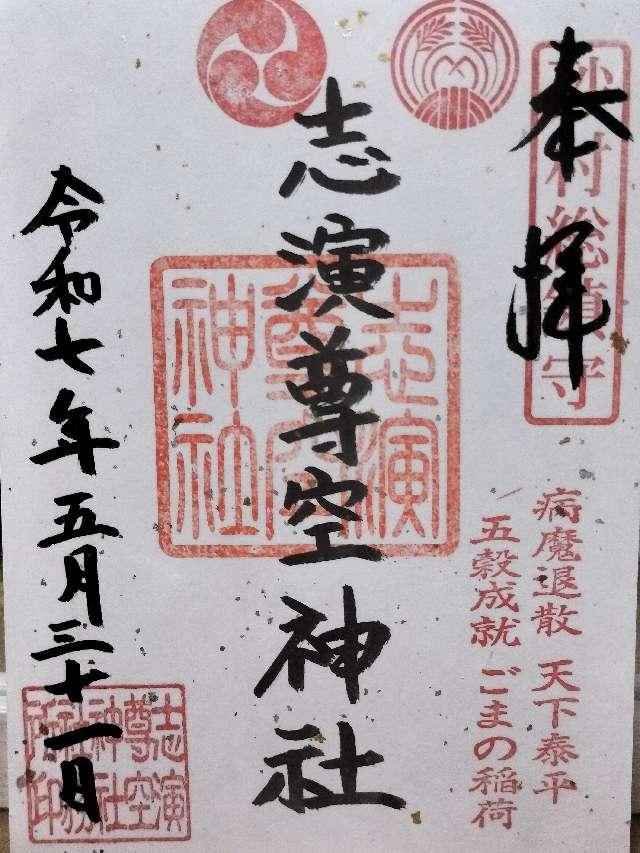 奉拝
砂村総鎮守
病魔退散 天下泰平
五穀成就 ごまの稲荷
志演尊空神社
志演
尊空
神社
令和七年五月三十一日
志演
尊空
神社
社務
所印